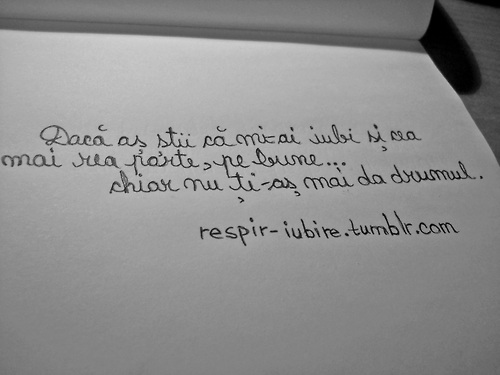 Dacă aș stii că mi-ai iubi și cea
mai rea parte, pe bune...
chiar nu ți-aș mai da drumul.
respir-iubire.tumblr.com